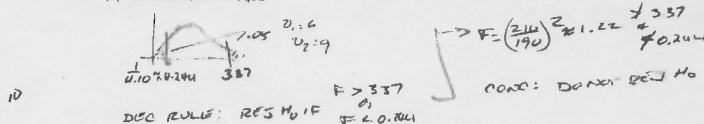 .05 υ₁ = 6
υ₂ = 9
1/4.10 = 0.244 337
→ F = (210/190)² ≈ 1.22 ≯ 337
≮ 0.244
10
DEC RULE: REJ H₀ IF F > 337
or
F < 0.244
CONC: DO NOT REJ H₀